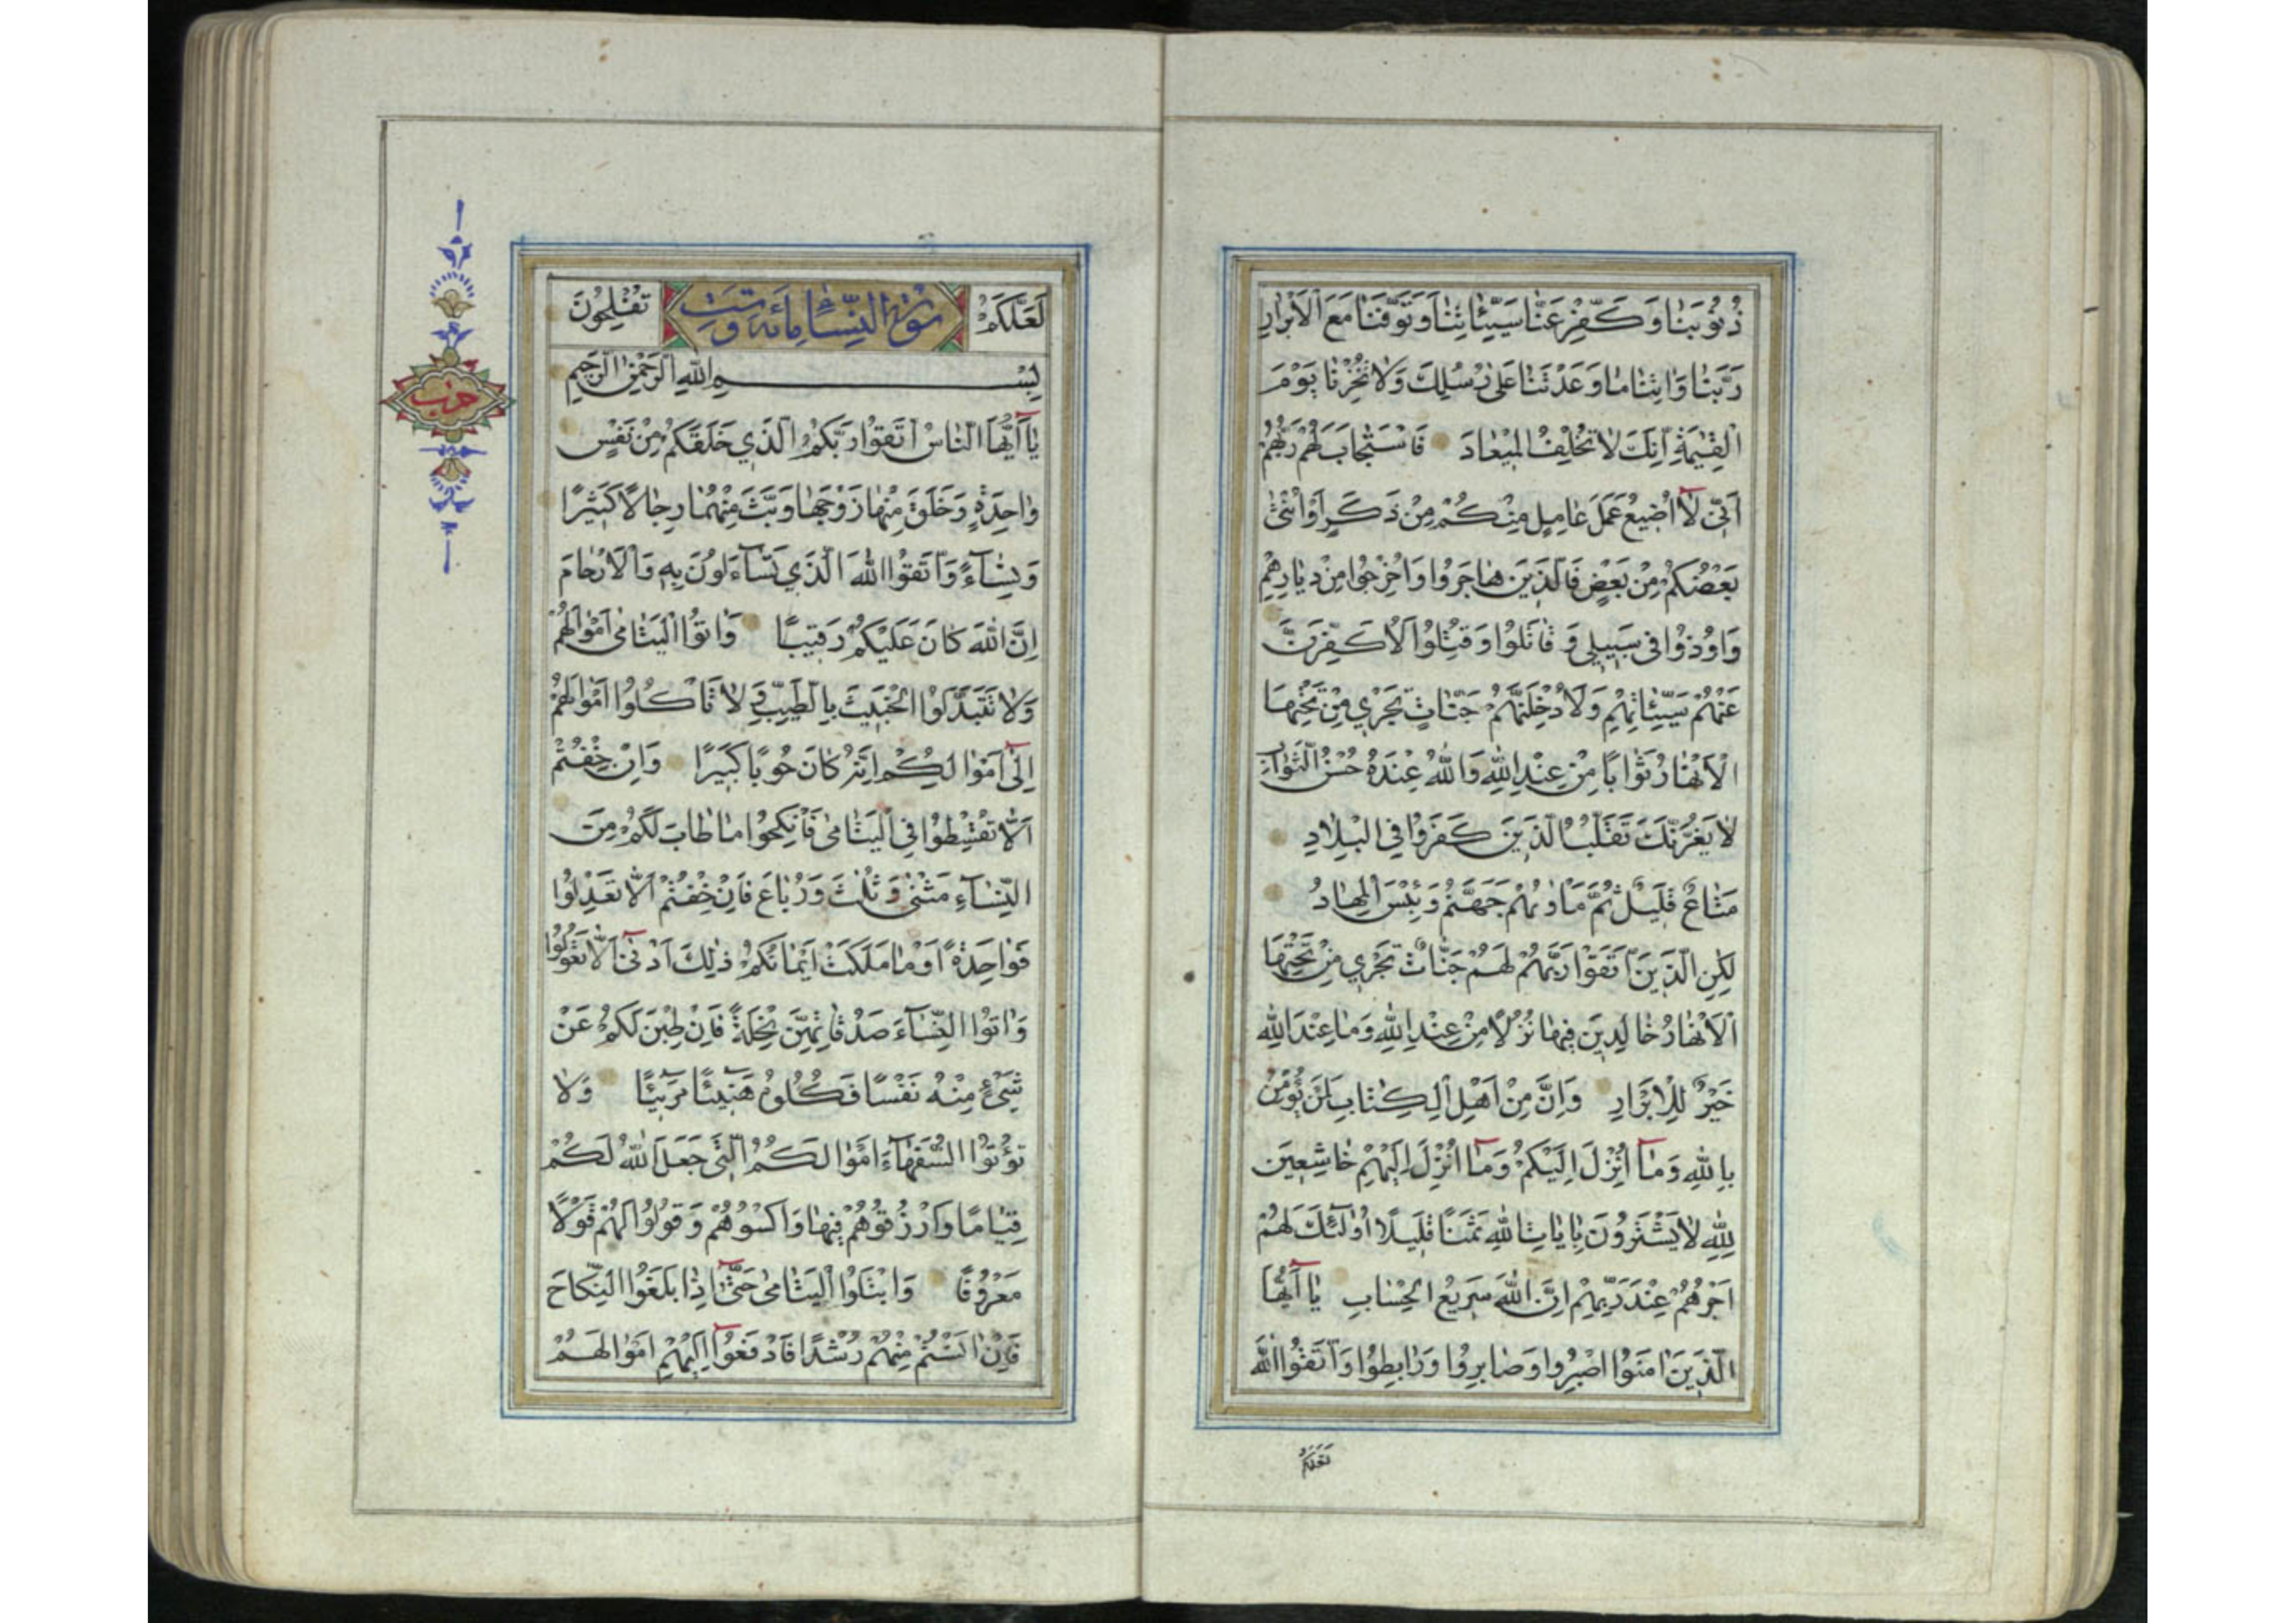 ذُنُوبَنَا وَكَفِّرْ عَنَّا سَيِّئَاتِنَا وَتَوَفَّنَا مَعَ الْاَبْرَارِ
رَبَّنَا وَاٰتِنَا مَا وَعَدْتَنَا عَلٰى رُسُلِكَ وَلَا تُخْزِنَا يَوْمَ
الْقِيٰمَةِ اِنَّكَ لَا تُخْلِفُ الْمِيْعَادَ فَاسْتَجَابَ لَهُمْ رَبُّهُمْ
اَنِّى لَآ اُضِيعُ عَمَلَ عَامِلٍ مِنْكُمْ مِنْ ذَكَرٍ اَوْ اُنْثٰى
بَعْضُكُمْ مِنْ بَعْضٍ فَالَّذِينَ هَاجَرُوا وَاُخْرِجُوا مِنْ دِيَارِهِمْ
وَاُوذُوا فِى سَبِيلِى وَقَاتَلُوا وَقُتِلُوا لَاُكَفِّرَنَّ
عَنْهُمْ سَيِّئَاتِهِمْ وَلَاُدْخِلَنَّهُمْ جَنَّاتٍ تَجْرِي مِنْ تَحْتِهَا
الْاَنْهَارُ ثَوَابًا مِنْ عِنْدِ اللّٰهِ وَاللّٰهُ عِنْدَهُ حُسْنُ الثَّوَابِ
لَا يَغُرَّنَّكَ تَقَلُّبُ الَّذِينَ كَفَرُوا فِي الْبِلَادِ
مَتَاعٌ قَلِيلٌ ثُمَّ مَاْوٰىهُمْ جَهَنَّمُ وَبِئْسَ الْمِهَادُ
لٰكِنِ الَّذِينَ اتَّقَوْا رَبَّهُمْ لَهُمْ جَنَّاتٌ تَجْرِي مِنْ تَحْتِهَا
الْاَنْهَارُ خَالِدِينَ فِيهَا نُزُلًا مِنْ عِنْدِ اللّٰهِ وَمَا عِنْدَ اللّٰهِ
خَيْرٌ لِلْاَبْرَارِ وَاِنَّ مِنْ اَهْلِ الْكِتَابِ لَمَنْ يُؤْمِنُ
بِاللّٰهِ وَمَآ اُنْزِلَ اِلَيْكُمْ وَمَآ اُنْزِلَ اِلَيْهِمْ خَاشِعِينَ
لِلّٰهِ لَا يَشْتَرُونَ بِاٰيَاتِ اللّٰهِ ثَمَنًا قَلِيلًا اُولٰٓئِكَ لَهُمْ
اَجْرُهُمْ عِنْدَ رَبِّهِمْ اِنَّ اللّٰهَ سَرِيعُ الْحِسَابِ يَآ اَيُّهَا
الَّذِينَ اٰمَنُوا اصْبِرُوا وَصَابِرُوا وَرَابِطُوا وَاتَّقُوا اللّٰهَ
لَعَلَّكُمْ
لَعَلَّكُمْ سُورَةُ النِّسَاءِ مِائَة وَسِتّ تُفْلِحُونَ
بِسْمِ اللّٰهِ الرَّحْمٰنِ الرَّحِيمِ
يَآ اَيُّهَا النَّاسُ اتَّقُوا رَبَّكُمُ الَّذِي خَلَقَكُمْ مِنْ نَفْسٍ
وَاحِدَةٍ وَخَلَقَ مِنْهَا زَوْجَهَا وَبَثَّ مِنْهُمَا رِجَالًا كَثِيرًا
وَنِسَآءً وَاتَّقُوا اللّٰهَ الَّذِي تَسَآءَلُونَ بِهِ وَالْاَرْحَامَ
اِنَّ اللّٰهَ كَانَ عَلَيْكُمْ رَقِيبًا وَاٰتُوا الْيَتَامٰى اَمْوَالَهُمْ
وَلَا تَتَبَدَّلُوا الْخَبِيثَ بِالطَّيِّبِ وَلَا تَاْكُلُوا اَمْوَالَهُمْ
اِلٰىٓ اَمْوَالِكُمْ اِنَّهُ كَانَ حُوبًا كَبِيرًا وَاِنْ خِفْتُمْ
اَلَّا تُقْسِطُوا فِي الْيَتَامٰى فَانْكِحُوا مَا طَابَ لَكُمْ مِنَ
النِّسَآءِ مَثْنٰى وَثُلٰثَ وَرُبَاعَ فَاِنْ خِفْتُمْ اَلَّا تَعْدِلُوا
فَوَاحِدَةً اَوْ مَا مَلَكَتْ اَيْمَانُكُمْ ذٰلِكَ اَدْنٰىٓ اَلَّا تَعُولُوا
وَاٰتُوا النِّسَآءَ صَدُقَاتِهِنَّ نِحْلَةً فَاِنْ طِبْنَ لَكُمْ عَنْ
شَيْءٍ مِنْهُ نَفْسًا فَكُلُوهُ هَنِيئًا مَرِيئًا وَلَا
تُؤْتُوا السُّفَهَآءَ اَمْوَالَكُمُ الَّتِي جَعَلَ اللّٰهُ لَكُمْ
قِيَامًا وَارْزُقُوهُمْ فِيهَا وَاكْسُوهُمْ وَقُولُوا لَهُمْ قَوْلًا
مَعْرُوفًا وَابْتَلُوا الْيَتَامٰى حَتّٰىٓ اِذَا بَلَغُوا النِّكَاحَ
فَاِنْ اٰنَسْتُمْ مِنْهُمْ رُشْدًا فَادْفَعُوٓا اِلَيْهِمْ اَمْوَالَهُمْ
حزب